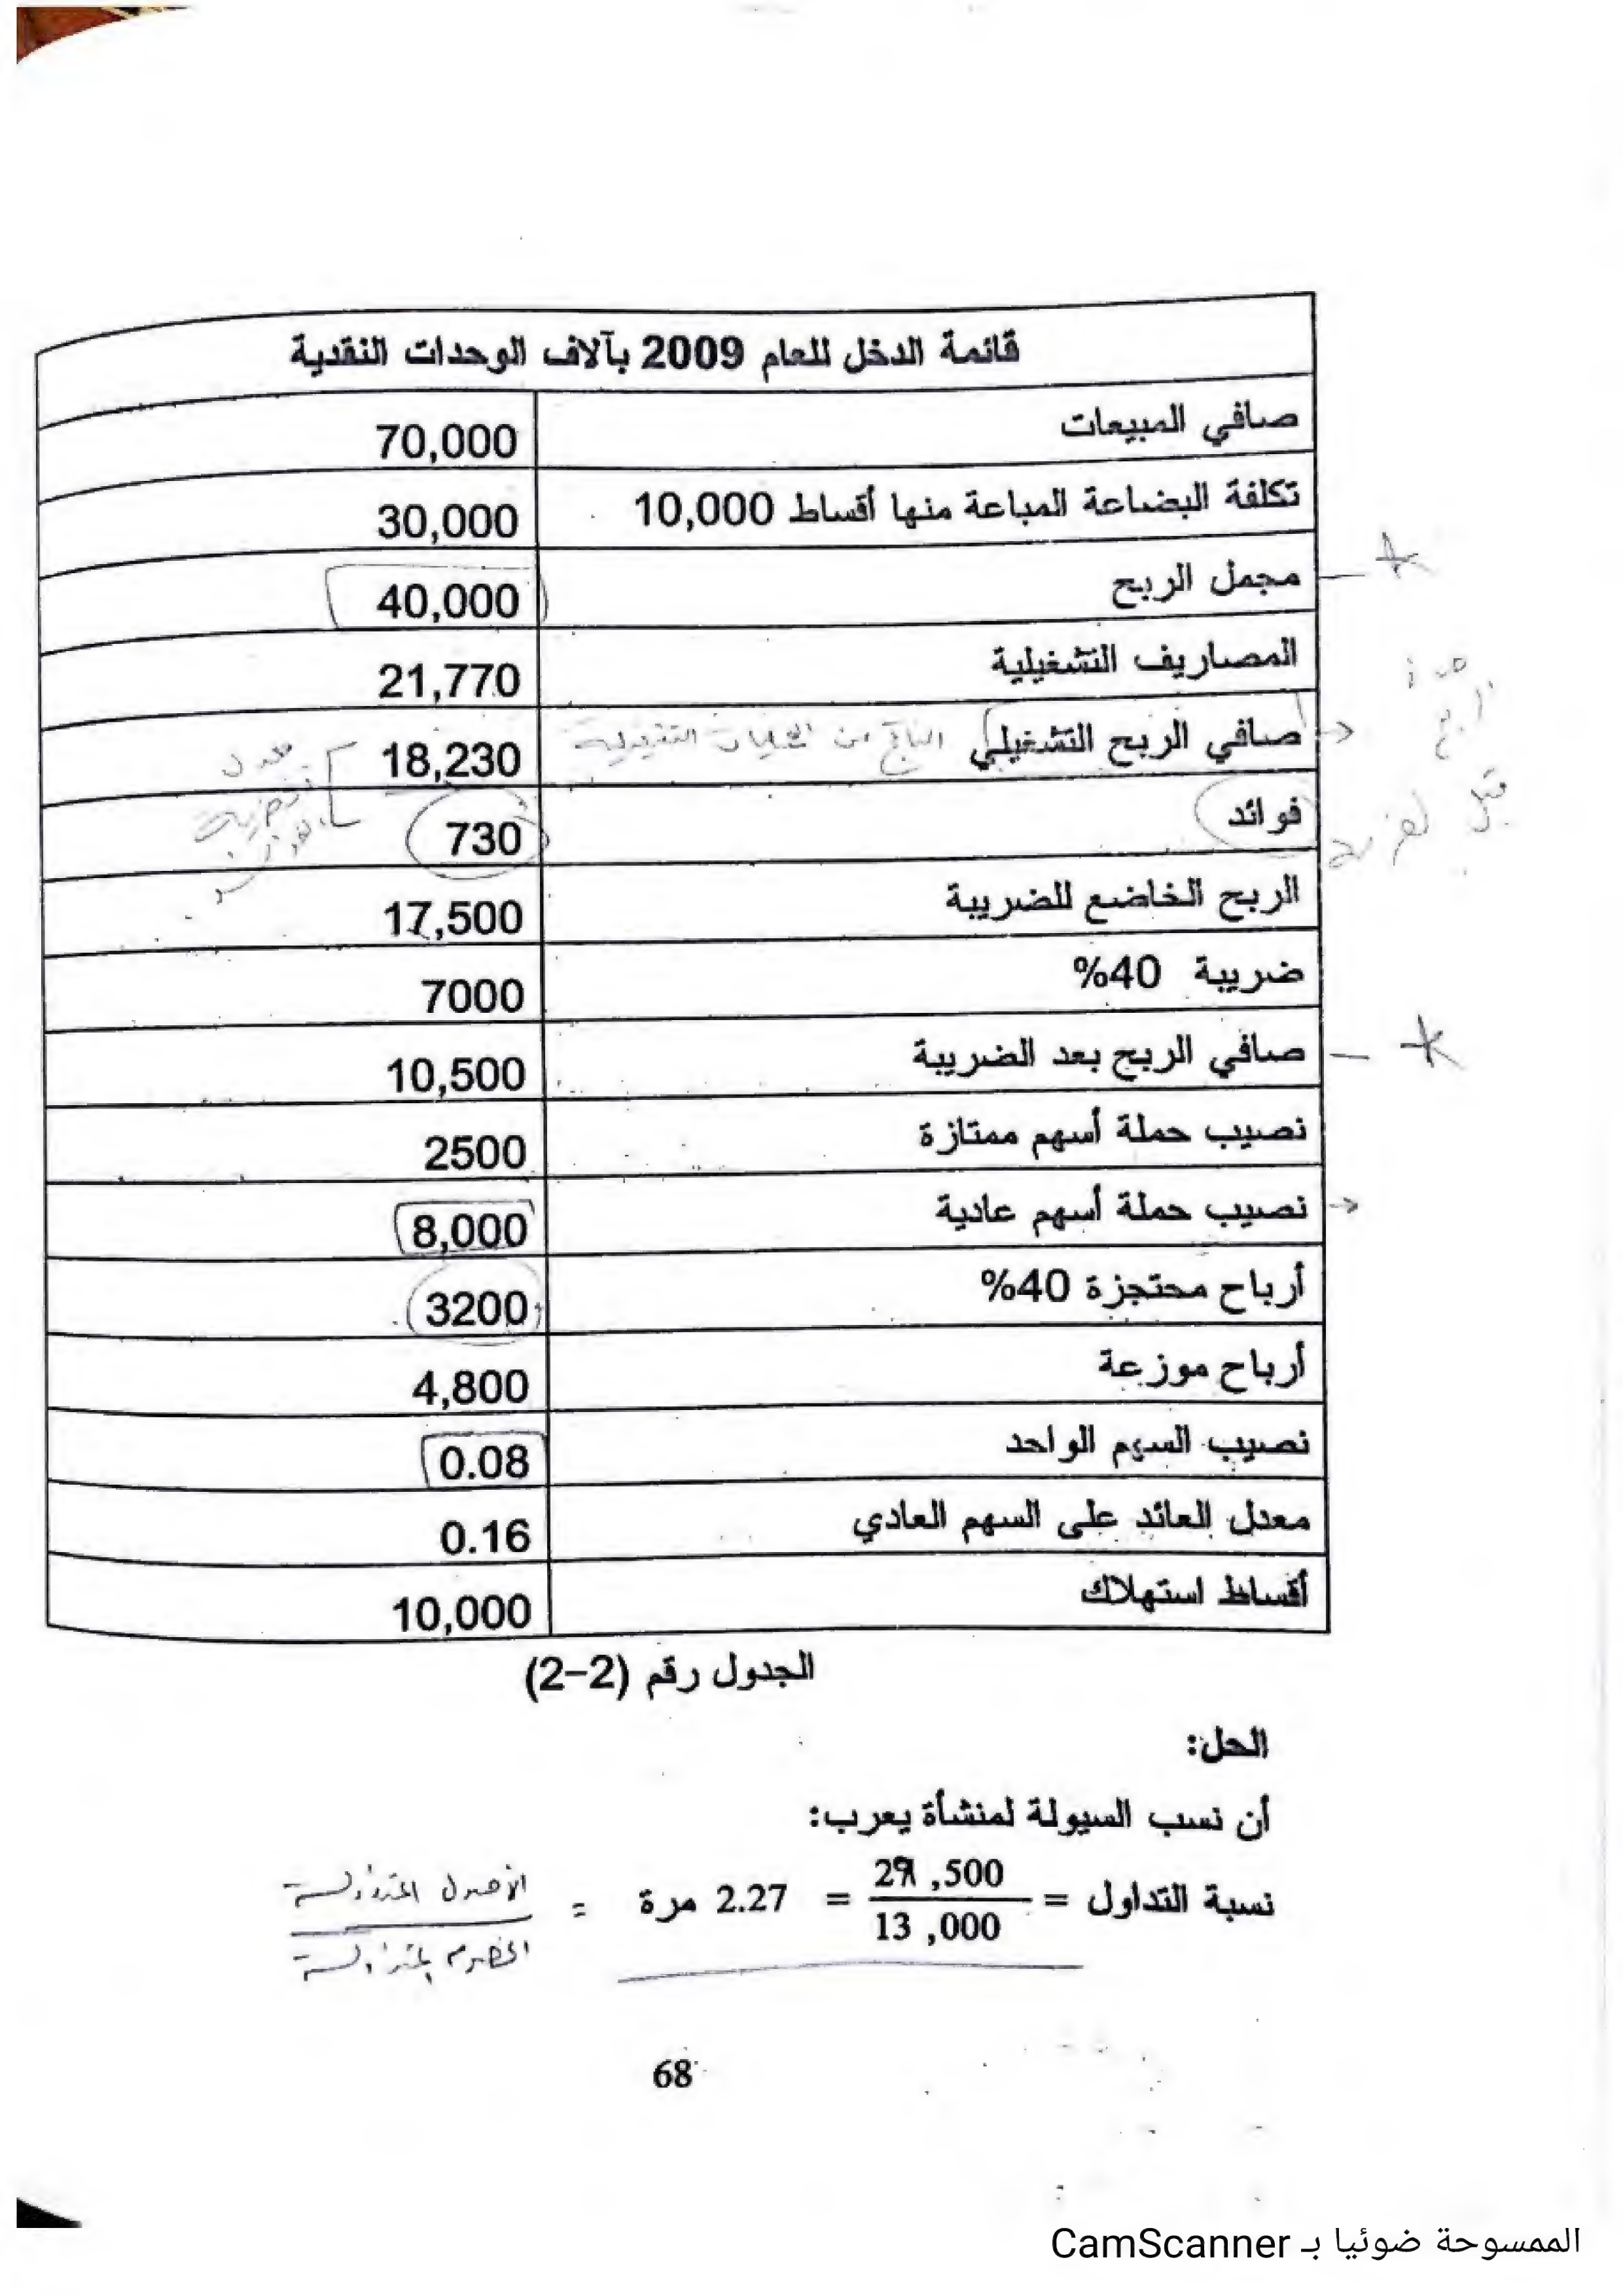 قائمة الدخل للعام 2009 بآلاف الوحدات النقدية
صافي المبيعات 70,000
تكلفة البضاعة المباعة منها أقساط 10,000 30,000
مجمل الربح 40,000
المصاريف التشغيلية 21,770
صافي الربح التشغيلي الناتج من العمليات التشغيلية 18,230
فوائد 730
الربح الخاضع للضريبة 17,500
ضريبة 40% 7000
صافي الربح بعد الضريبة 10,500
نصيب حملة أسهم ممتازة 2500
نصيب حملة أسهم عادية 8,000
أرباح محتجزة 40% 3200
أرباح موزعة 4,800
نصيب السهم الواحد 0.08
معدل العائد على السهم العادي 0.16
أقساط استهلاك 10,000
الجدول رقم (2-2)
الحل:
أن نسب السيولة لمنشأة يعرب:
نسبة التداول = 29,500 / 13,000 = 2.27 مرة = الأصول المتداولة / الخصوم المتداولة
68
الممسوحة ضوئيا بـ CamScanner